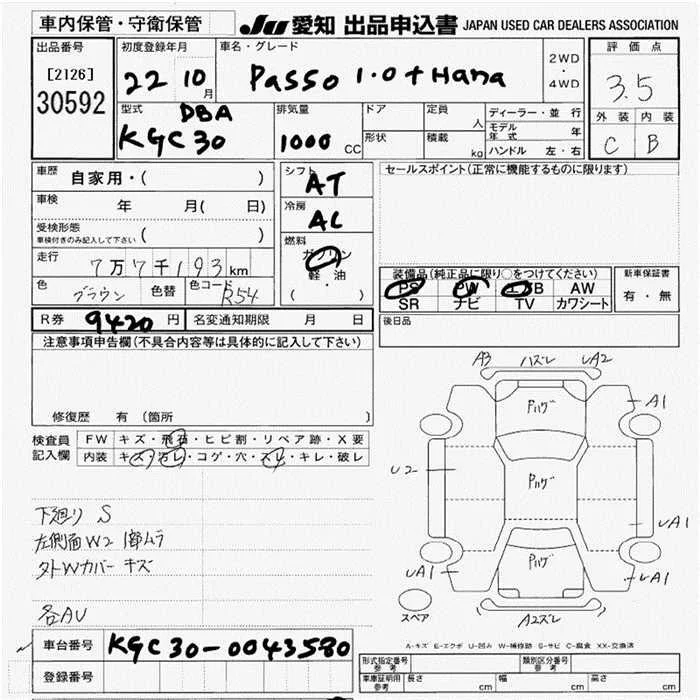 車内保管・守衛保管
JU 愛知 出品申込書 JAPAN USED CAR DEALERS ASSOCIATION
出品番号
[2126]
30592
初度登録年月
22 10月
車名・グレード
Passo 1.0 + Hana
2WD
・
4WD
評価点
3.5
外装 内装
C B
型式
DBA
KGC30
排気量
1000 CC
ドア
形状
定員 人
積載 kg
ディーラー・並行
モデル年式 年
ハンドル 左・右
車歴 自家用・( )
車検 年 月( 日)
受検形態
車検付きのみ記入して下さい ( )
走行 7万7千193km
色 ブラウン 色替 色コード R54
シフト
AT
冷房
AC
燃料
ガソリン
軽油
( ・ )
セールスポイント(正常に機能するものに限ります)
装備品(純正品に限り○をつけてください)
PS PW エアB AW
SR ナビ TV カワシート
新車保証書
有・無
R券 9420円 名変通知期限 月 日
後日品
注意事項申告欄(不具合内容等は具体的に記入して下さい)
修復歴 有 (箇所 )
検査員
記入欄
FW キズ・飛石・ヒビ割・リペア跡・X要
内装 キズ・汚レ・コゲ・穴・スレ・キレ・破レ
下廻り S
左側面W2 1部ムラ
タトWカバー キズ
各AU
A3 ハズレ UA2
Pハゲ
A1
U2
Pハゲ
UA1
UA1
Pハゲ
UA1
スペア
A2ズレ
A-キズ E-エクボ U-凹み W-補修跡 S-サビ C-腐食 XX-交換済
車台番号 KGC30-0043580
登録番号
形式指定番号
参考
類別区分番号
参考
車庫証明用
参考
長さ cm 幅 cm 高さ cm